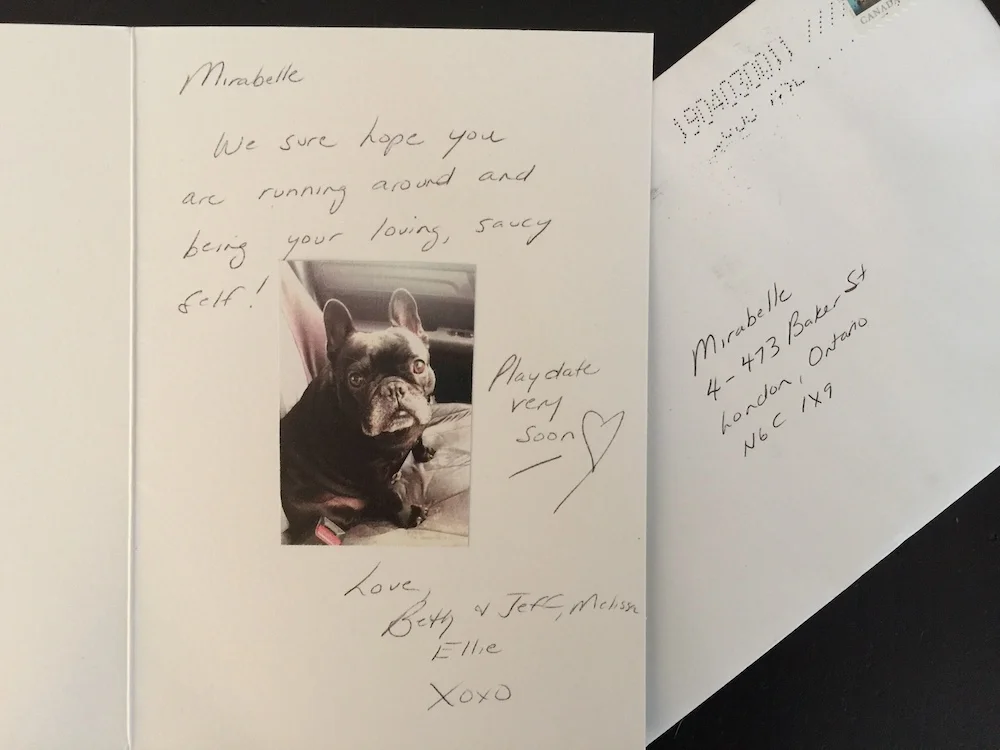 Mirabelle
We sure hope you
are running around and
being your loving, saucy
self!
Playdate
very
soon
Love,
Beth & Jeff, Melissa
Ellie
XOXO
CANADA
1904030011
Mirabelle
4-473 Baker St
London, Ontario
N6C 1X9